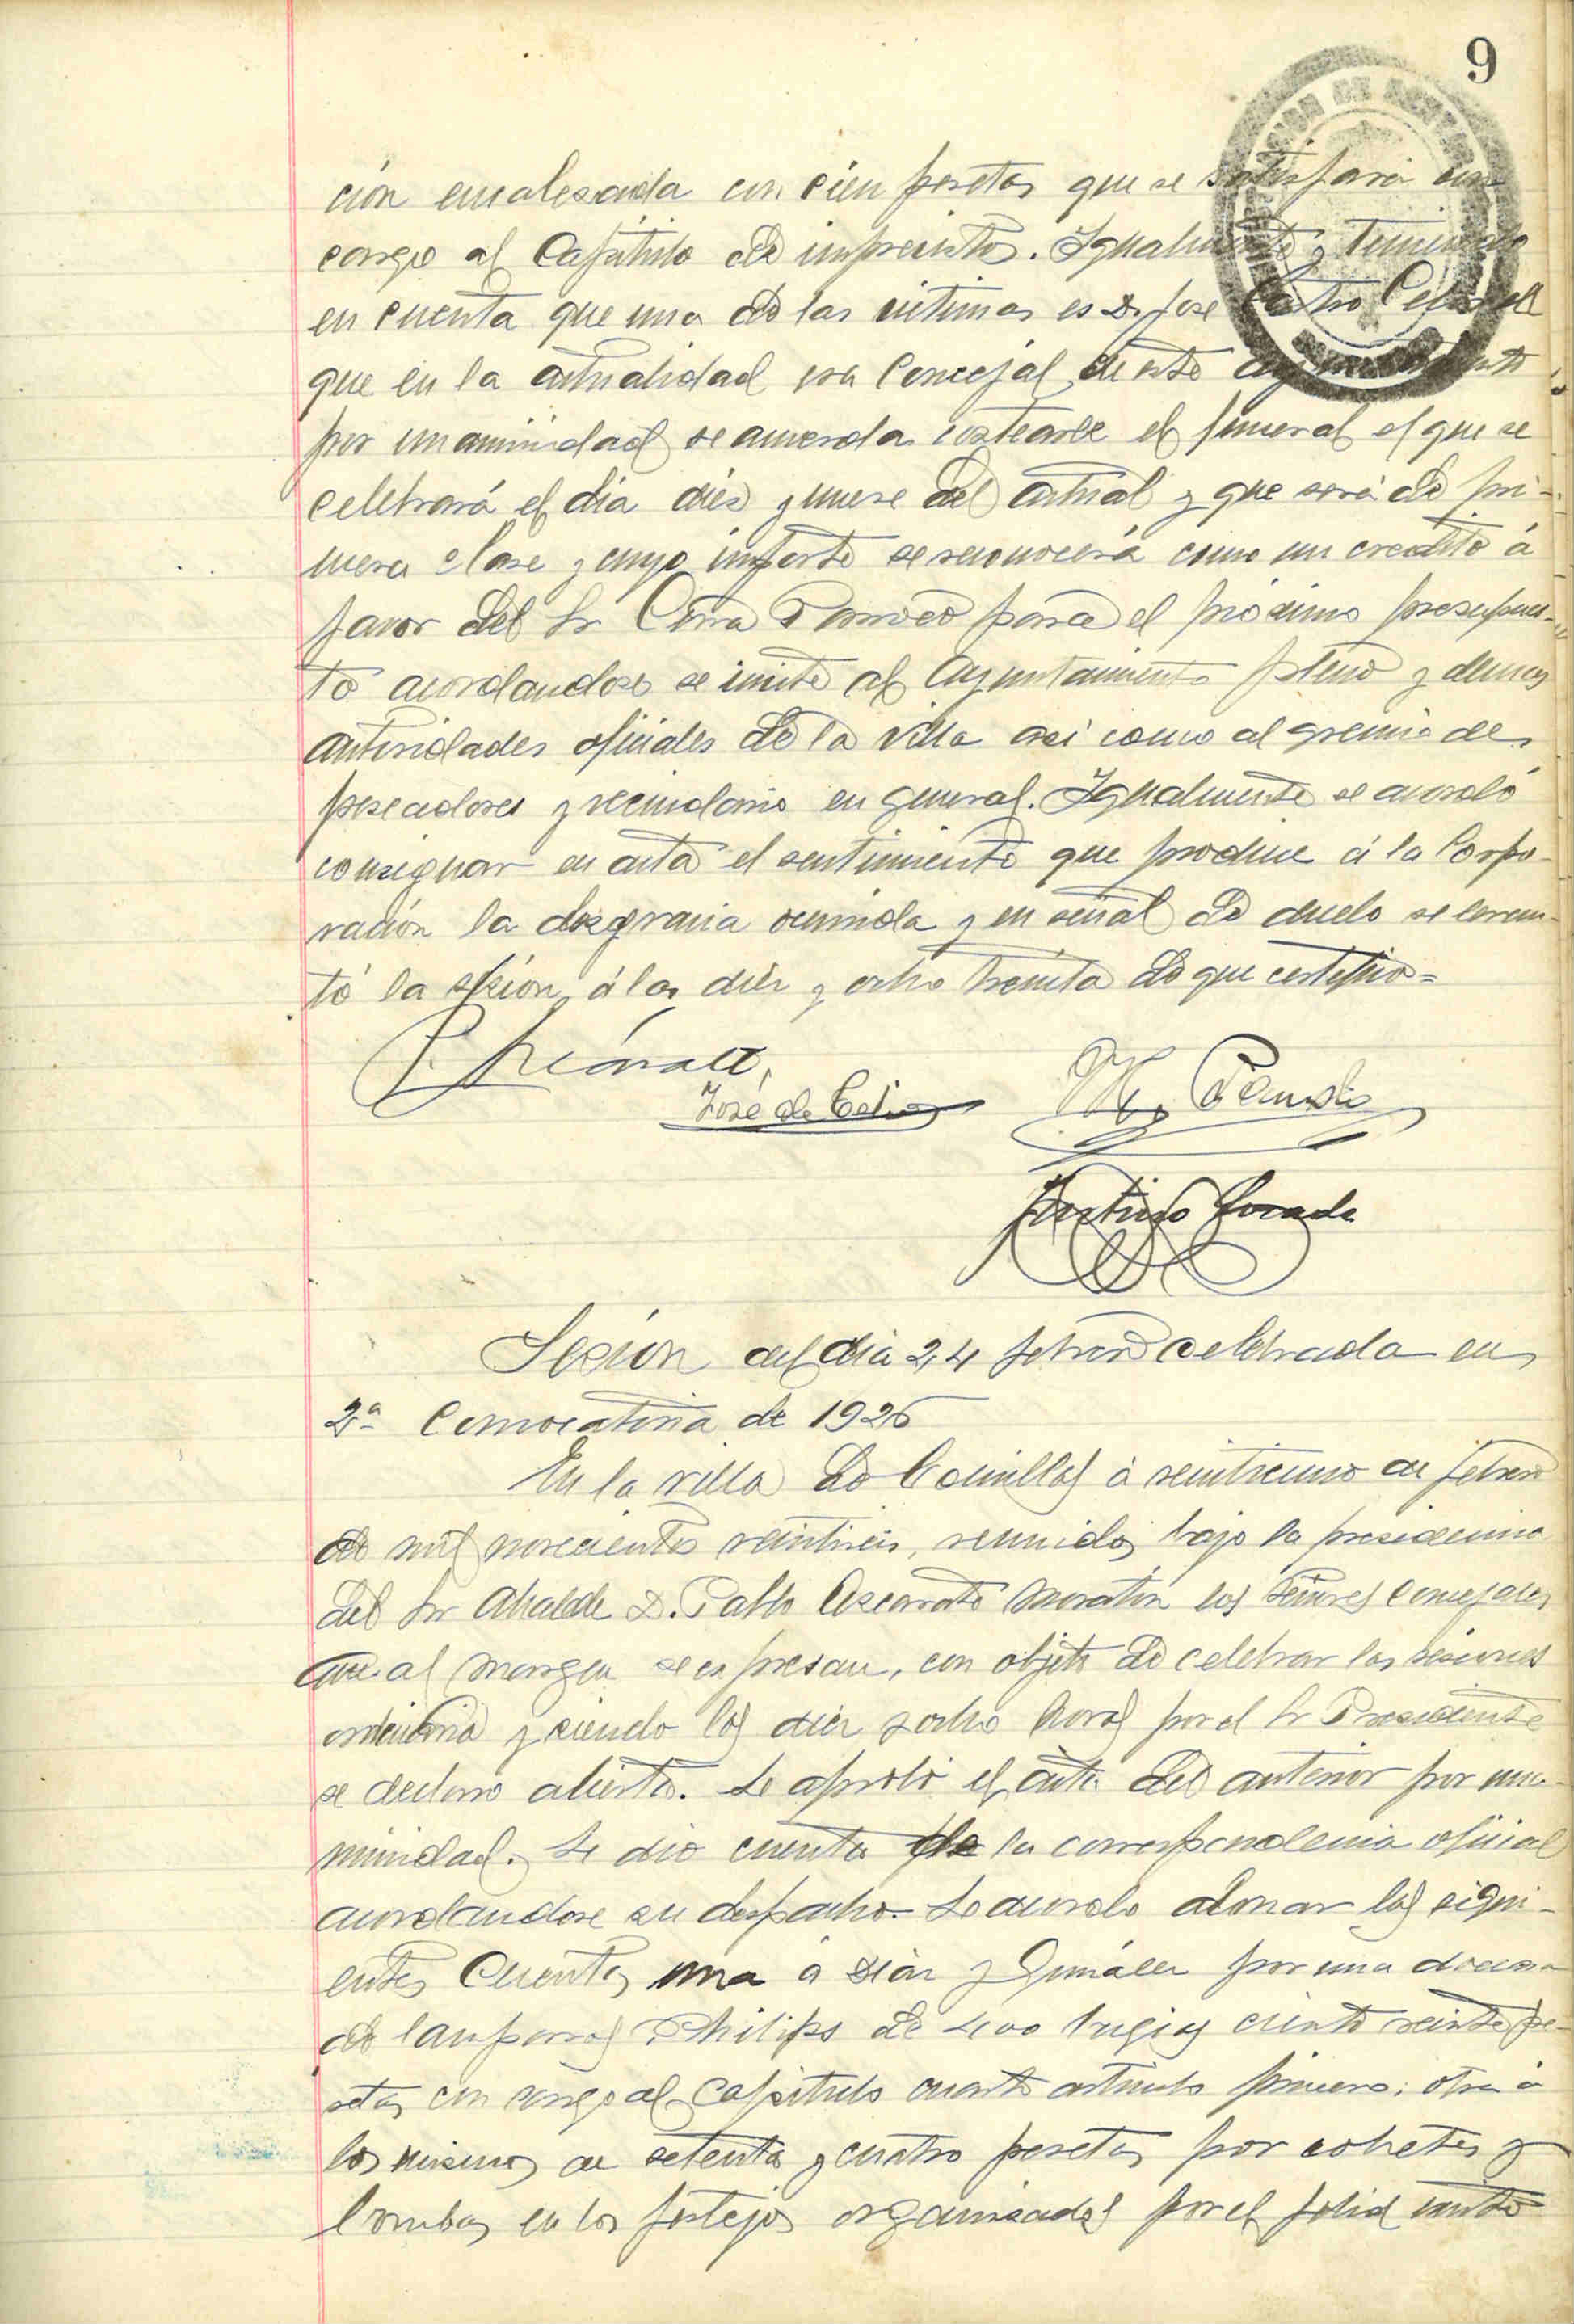 9
ción encabezada con cien pesetas que se satisfará con
cargo al Capítulo de imprevistos. Igualmente y teniendo
en cuenta que una de las victimas es D. José Castro
que en la actualidad era Concejal de este Ayuntamiento
por unanimidad se acuerda costearle el funeral el que se
celebrará el dia diez y nueve del actual y que será de pri-
mera clase y cuyo importe se reconocerá como un credito á
favor del Sr Cura Parroco para el próximo presupues-
to acordandose se invite al Ayuntamiento pleno y demas
autoridades oficiales de la villa asi como al gremio de
pescadores y vecindario en general. Igualmente se acordó
consignar en acta el sentimiento que produce á la Corpo-
ración la desgracia ocurrida y en señal de duelo se levan-
tó la sesión á las diez y ocho treinta de que certifico=
José de
Sesión del dia 24 febrero celebrada en
2ª Convocatoria de 1926
En la villa de Comillas á veinticuatro de febrero
de mil novecientos veintiseis, reunidos bajo la presidencia
del Sr Alcalde D. Pablo Azcarate los señores Concejales
que al margen se expresan, con objeto de celebrar las sesiones
ordinaria y siendo las diez y ocho horas por el Sr Presidente
se declaro abierta. Se aprobó el acta del anterior por una-
nimidad. Se dio cuenta de la correspondencia oficial
acordandose su despacho. Se acordo abonar las sigui-
entes Cuentas una á Díaz y González por una docena
de lamparas Philips de 400 bugias ciento veinte pe-
setas con cargo al Capitulo cuarto articulo primero; otra á
los mismos de setenta y cuatro pesetas por cohetes y
bombas en los festejos organizados por el feliz exito